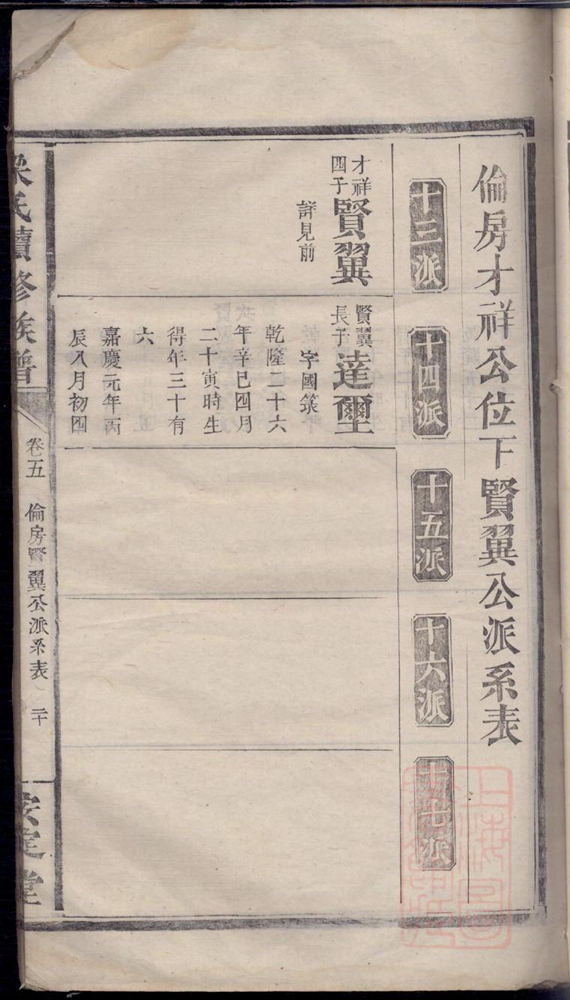 倫房才祥公位下賢翼公派系表
十三派
十四派
十五派
十六派
十七派
才祥
四子
賢翼
詳見前
賢翼
長子
達壐
字國築
乾隆二十六
年辛巳四月
二十寅時生
得年三十有
六
嘉慶元年丙
辰八月初四
氏續修族譜
卷五
倫房賢翼公派系表
二十
安定堂